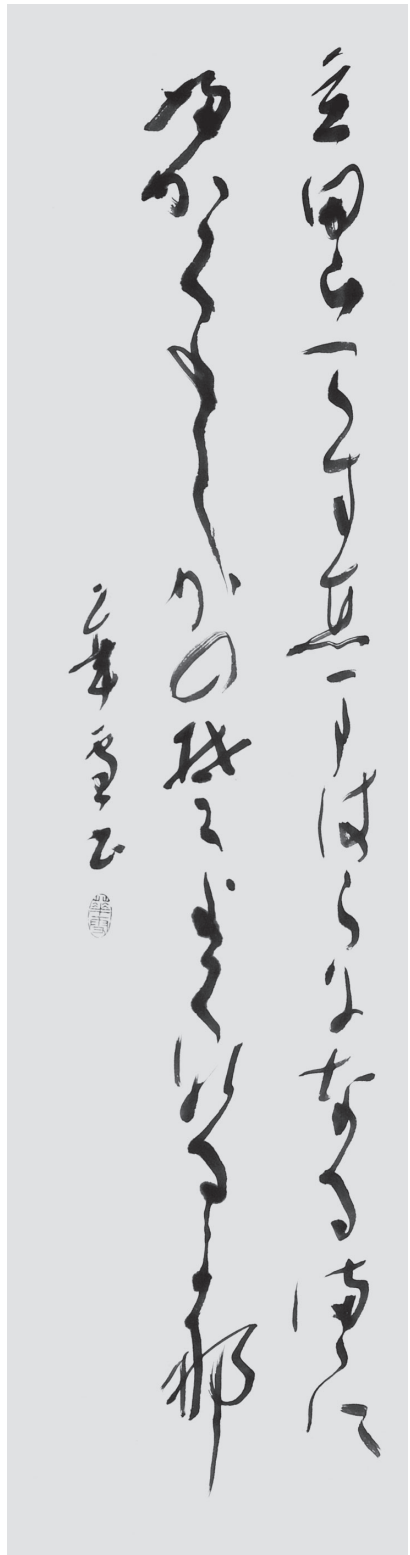 立田山こすゑまはらになるまゝに
ふかくもしかのそよくなるかな
華雪書